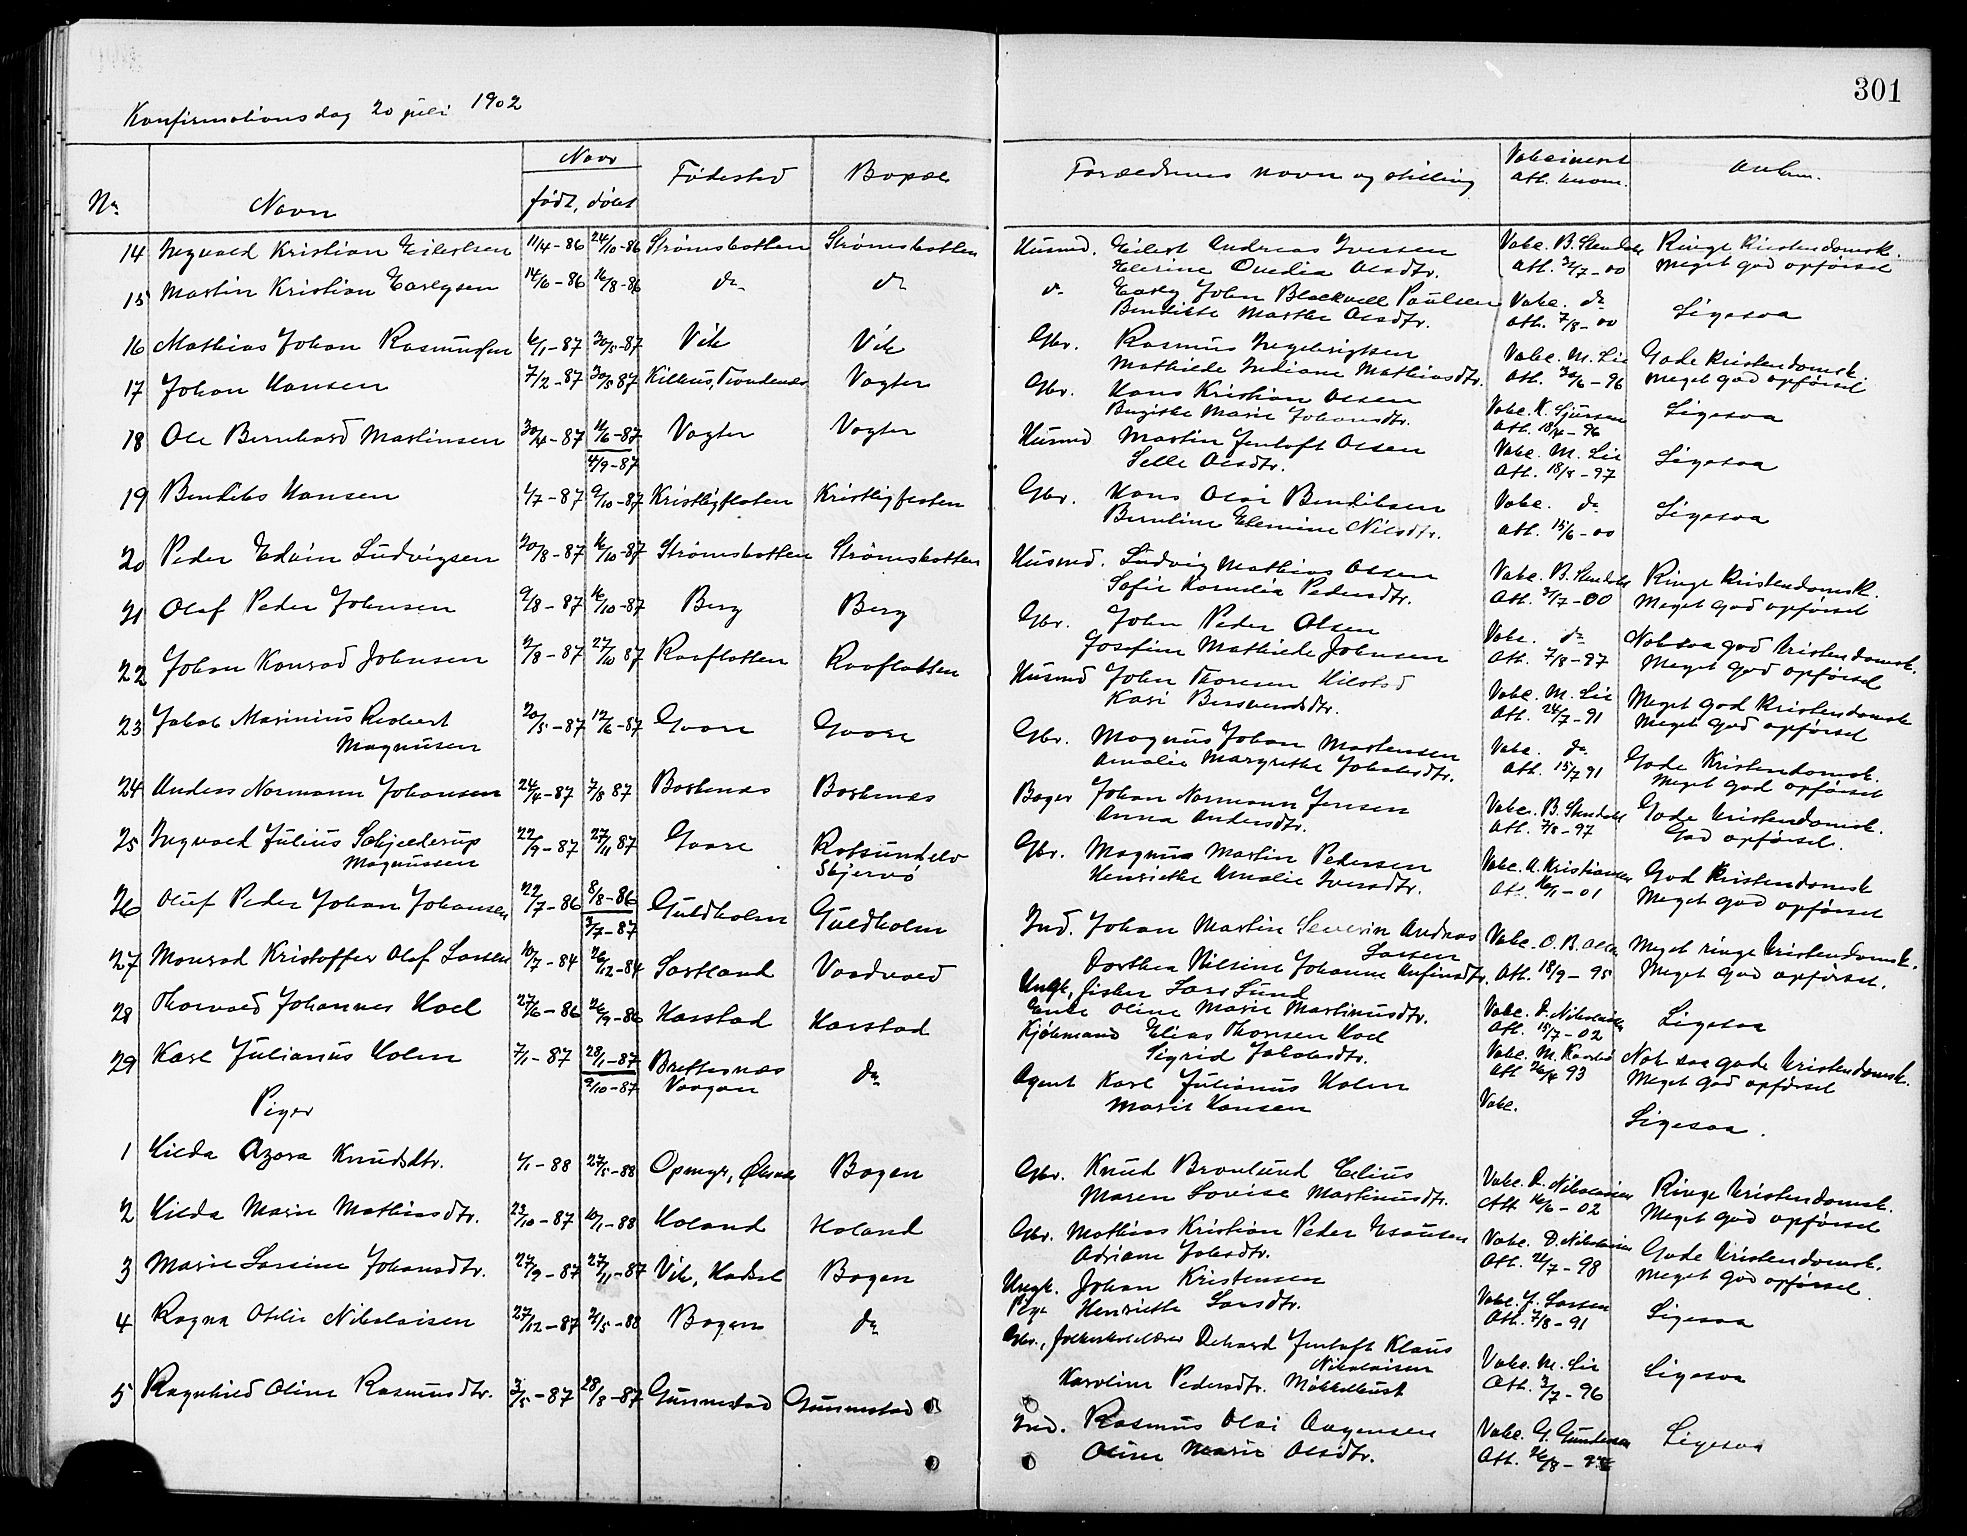 301
Konfirmationsdag 20 juli 1902
No Navn Naar født, døbt Fødested Bopæl Forældrenes navn og stilling Vakcineret Att. Anm.
14 Ingvald Kristian Eilertsen 11/4-86 24/10-86 Strømsbotten Strømsbotten Husmd. Eilert Andreas Iversen Vakc. B. Stendahl Ringe Kristendomsk.
Elerine Ovedia Olsdtr. Att. 3/7-00 Meget god opførsel
15 Martin Kristian Earlysen 14/6-86 16/8-86 do do do Early John Blackwell Paulsen Vakc. do Ligesaa
Bendikte Marthe Olsdtr. Att. 7/8-00
16 Mathias Johan Rasmussen 6/1-87 30/5-87 Vik Vik Gbr. Rasmus Ingebrigtsen Vakc. M. Lie Gode Kristendomsk.
Mathilde Indiane Mathiasdtr. Att. 30/6-96 Meget god opførsel
17 Johan Hansen 7/2-87 30/5 87 Kilhus, Trondenæs Vagter Gbr. Hans Kristian Olsen Vakc. K. Sjursen Ligesaa
Birgithe Marie Johansdtr. Att. 18/4-96
18 Ole Bernhard Martinsen 30/4-87 11/6-87 Vagter Vagter Husmd Martin Jentoft Olsen Vakc. M. Lie Ligesaa
4/9-87 Selle Olsdtr. Att. 18/8-97
19 Bendiks Hansen 1/7-87 9/10-87 Kristligflaten Kristligflaten Gbr. Hans Olai Bendiksen Vakc. do Ligesaa
Berntine Elemine Nilsdtr. Att. 15/6-00
20 Peder Edvin Ludvigsen 20/8-87 16/10-87 Strømsbotten Strømsbotten Husmd. Ludvig Mathias Olsen Vakc. B. Stendahl Ringe Kristendomsk.
Sofie Kornelia Pedersdtr. Att. 3/7-00 Meget god opførsel
21 Olaf Peder Johnsen 9/8-87 16/10-87 Berg Berg Gbr. John Peder Olsen Vakc. do Noksaa god Kristendomsk.
Josefine Mathilde Johnsen Att. 7/8-97 Meget god opførsel
22 Johan Konrad Johnsen 2/8-87 27/10 87 Raaflatten Raaflatten Husmd John Thoresen Hilstad Vakc. M. Lie Meget god Kristendomsk
Kari Bersvendsdtr. Att. 24/7-91 Meget god opførsel
23 Jakob Marinius Robert 20/5-87 12/6-87 Gaare Gaare Gbr. Magnus Johan Martensen Vakc. do Gode Kristendomsk.
Magnusen Amalie Margrethe Jakobsdtr. Att. 15/7 91 Meget god opførsel
24 Anders Normann Johansen 24/4-87 7/8 87 Borkenæs Borkenæs Bager Johan Normann Jensen Vakc. B. Stendahl Gode Kristendomsk.
Anna Andersdtr. Att. 7/8-97 God opførsel.
25 Ingvald Julius Schjelderup 22/9-87 27/11 87 Gaare Rotsundelv Gbr. Magnus Martin Pedersen Vakc. A. Kristiansen God Kristendomsk
Magnussen Skjervø Henriette Amalie Iversdtr. Att. 16/1-01 Meget god opførsel
26 Oluf Peder Johan Johansen 22/7-86 8/8-86 Guldholm Guldholm Ind. Johan Martin Severin Andreas Vakc. O. B. Olsen Meget ringe Kristendomsk.
3/7-87 Larsen
Dorthea Nilsine Johanne Anfinsdtr. Att. 18/9-95 Meget god opførsel.
27 Monrad Kristoffer Olaf Larsen 10/7-84 26/12-84 Sortland Vaadvold Ungk. fisker Lars Lund
Enke Oline Marie Martinusdtr. Vakc. D. Nikolaisen Ligesaa
28 Thorvald Johannes Hoel 27/6-86 26/9-86 Harstad Harstad Kjøbmand Elias Thoresen Hoel Att. 15/7-02
Sigrid Jakobsdtr. Vakc. M. Kaarbø Nok saa gode Kristendomsk.
29 Karl Julianus Holm 7/1-87 28/1-87 Brettesnæs do Agent Karl Julianus Holm Att 26/4 93 Meget god opførsel
9/10-87 Vaagan Marie Hansen Vakc. Ligesaa.
Piger
1 Hilda Azora Knudsdtr. 1/1-88 27/5-88 Opmyr, Øksnæs Bogen Gbr. Knud Bronlund Celius Vakc. D. Nikolaisen Ringe Kristendomsk.
Maren Lovise Martinusdtr. Att 16/6-02 Meget god opførsel
2 Hilda Marie Mathiasdtr. 23/10-87 10/1-88 Holand Holand Gbr. Mathias Kristian Peder Esausen Vakc. D. Nikolaisen Gode Kristendomsk.
Adriane Jakobsdtr. Att. 21/7-98 Meget god opførsel.
3 Marie Larsine Johansdtr. 27/9-87 27/11-87 Vik, Hadsel Bogen Ungk. Johan Kristensen Vakc. J. Larsen Ligesaa
Pige Henriette Larsdtr. Att. 7/8-91
4 Ragna Otilie Nikolaisen 27/12-87 21/5-88 Bogen do Gbr., folkeskolelærer Dehard Jentoft Klaus Vakc. M. Lie Ligesaa
Nikolaisen
Karoline Pedersdtr. Møkkelbust Att. 3/7-96
5 Ragnhild Oline Rasmusdtr. 3/5-87 28/8-87 Gunnestad Gunnestad Ind. Rasmus Olai Aagensen Vakc. G. Gundersen Ligesaa
Oline Marie Olsdtr. Att. 26/8-